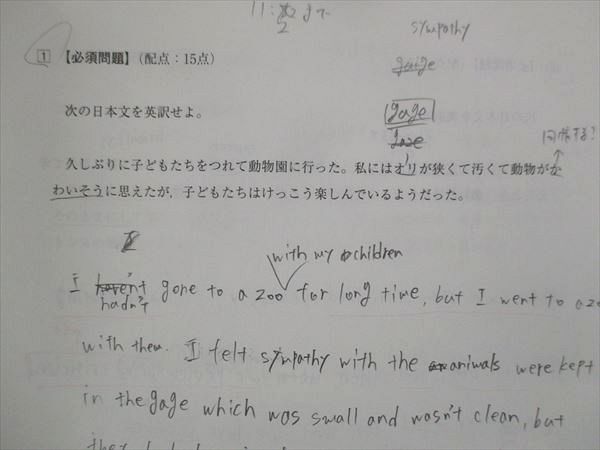 11:
2
sympathy
gaige
gage
gaze
同情する?
1 【必須問題】(配点:15点)
次の日本文を英訳せよ。
久しぶりに子どもたちをつれて動物園に行った。私にはオリが狭くて汚くて動物がか
わいそうに思えたが、子どもたちはけっこう楽しんでいるようだった。
with my children
I haven't gone to a zoo for long time, but I went to a zo
hadn't
with them. I felt sympathy with the animals were kept
in the gage which was small and wasn't clean, but